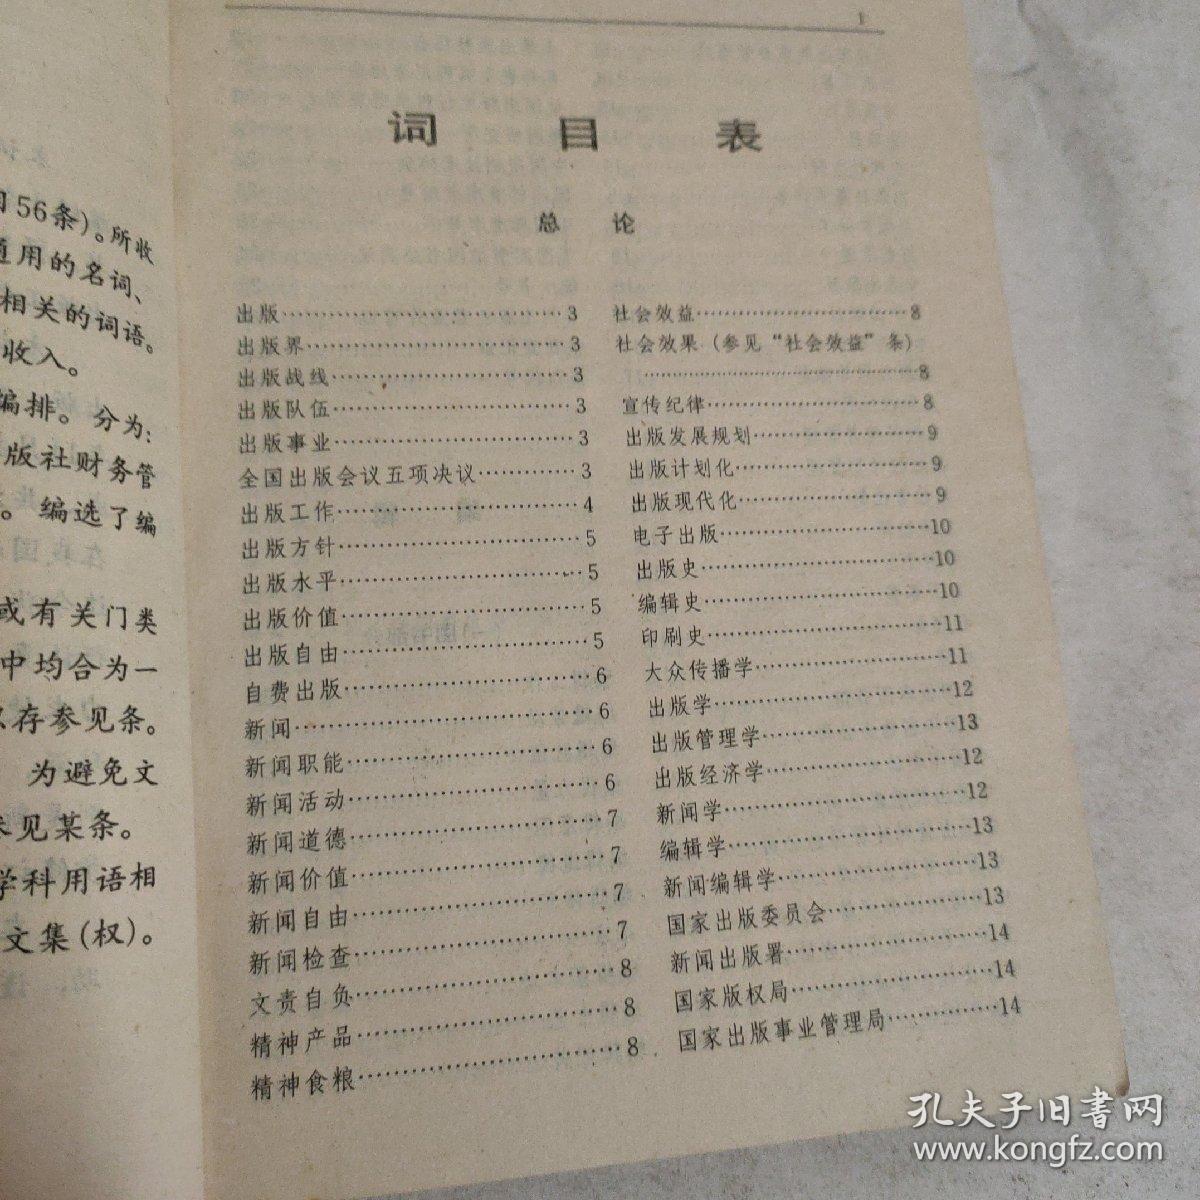 56条)。所收
通用的名词、
相关的词语。
收入。
编排。分为:
版社财务管
。编选了编
或有关门类
中均合为一
以存参见条。
为避免文
见某条。
学科用语相
文集(权)。
1
词目表
总论
出版……3
出版界……3
出版战线……3
出版队伍……3
出版事业……3
全国出版会议五项决议……3
出版工作……4
出版方针……5
出版水平……5
出版价值……5
出版自由……5
自费出版……6
新闻……6
新闻职能……6
新闻活动……6
新闻道德……7
新闻价值……7
新闻自由……7
新闻检查……7
文责自负……8
精神产品……8
精神食粮……8
社会效益……8
社会效果(参见“社会效益”条)
……8
宣传纪律……8
出版发展规划……9
出版计划化……9
出版现代化……9
电子出版……10
出版史……10
编辑史……10
印刷史……11
大众传播学……11
出版学……12
出版管理学……13
出版经济学……12
新闻学……12
编辑学……13
新闻编辑学……13
国家出版委员会……13
新闻出版署……14
国家版权局……14
国家出版事业管理局……14
孔夫子旧书网
www.kongfz.com